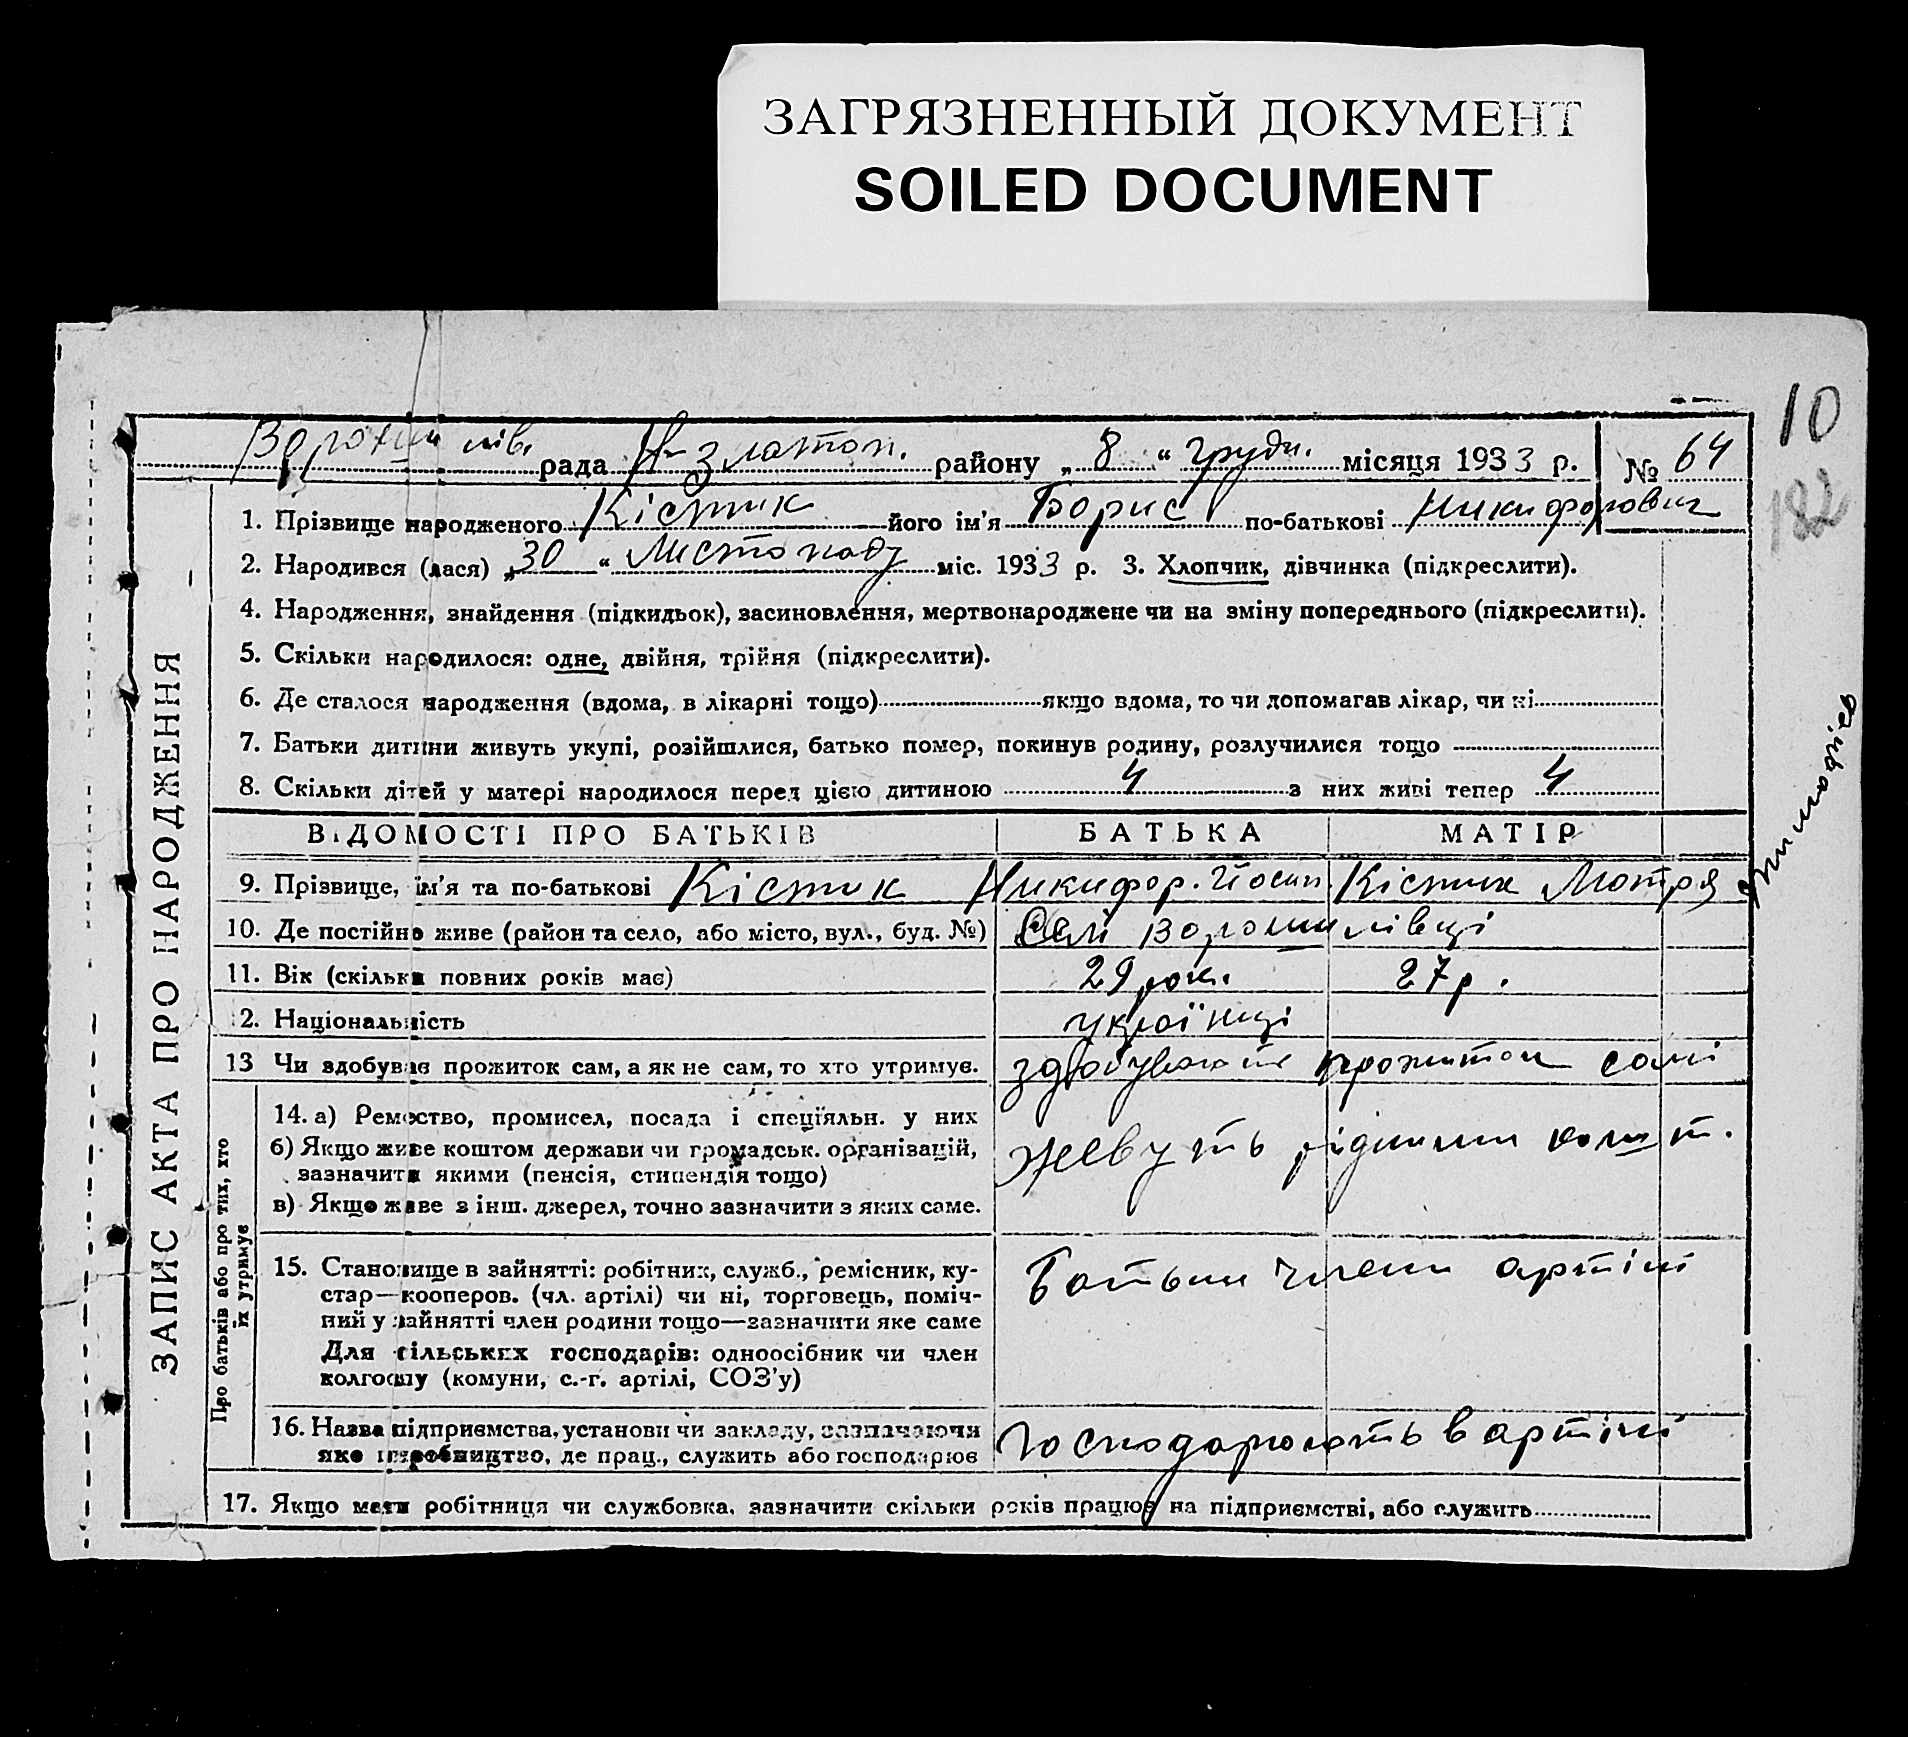 ЗАГРЯЗНЕННЫЙ ДОКУМЕНТ
SOILED DOCUMENT
10
182
Ворошилів. рада Н-Златоп. району „8“ грудн. місяця 1933 р. № 64
ЗАПИС АКТА ПРО НАРОДЖЕННЯ
1. Прізвище народженого Кістик його ім'я Борис по-батькові Никифорович
2. Народився (лася) „30“ Листопаду міс. 1933 р. 3. Хлопчик, дівчинка (підкреслити).
4. Народження, знайдення (підкидьок), засиновлення, мертвонароджене чи на зміну попереднього (підкреслити).
5. Скільки народилося: одне, двійня, трійня (підкреслити).
6. Де сталося народження (вдома, в лікарні тощо) якщо вдома, то чи допомагав лікар, чи ні
7. Батьки дитини живуть укупі, розійшлися, батько помер, покинув родину, розлучилися тощо
8. Скільки дітей у матері народилося перед цією дитиною 4 з них живі тепер 4
ВІДОМОСТІ ПРО БАТЬКІВ БАТЬКА МАТІР
9. Прізвище, ім'я та по-батькові Кістик Никифор. Йосип. Кістик Мотря
10. Де постійно живе (район та село, або місто, вул., буд. №) Селі Ворошилівці
11. Вік (скільки повних років має) 29 рок. 27 р.
12. Національність українці
13 Чи здобував прожиток сам, а як не сам, то хто утримує. здобувають прожиток самі
Про батьків або про тих, хто
їх утримує
14. а) Ремество, промисел, посада і спеціяльн. у них
б) Якщо живе коштом держави чи громадськ. організацій,
зазначити якими (пенсія, стипендія тощо)
в) Якщо живе з інш. джерел, точно зазначити з яких саме.
живуть рідними кошт.
15. Становище в зайнятті: робітник, служб., ремісник, ку-
стар—кооперов. (чл. артілі) чи ні, торговець, поміч-
ний у зайнятті член родини тощо—зазначити яке саме
Для сільських господарів: одноосібник чи член
колгоспу (комуни, с.-г. артілі, СОЗ'у)
Батьки члени артілі
16. Назва підприємства, установи чи закладу, зазначаючи
яке виробництво, де прац., служить або господарює
господарюють в артілі
17. Якщо мати робітниця чи службовка, зазначити скільки років працює на підприємстві, або служить